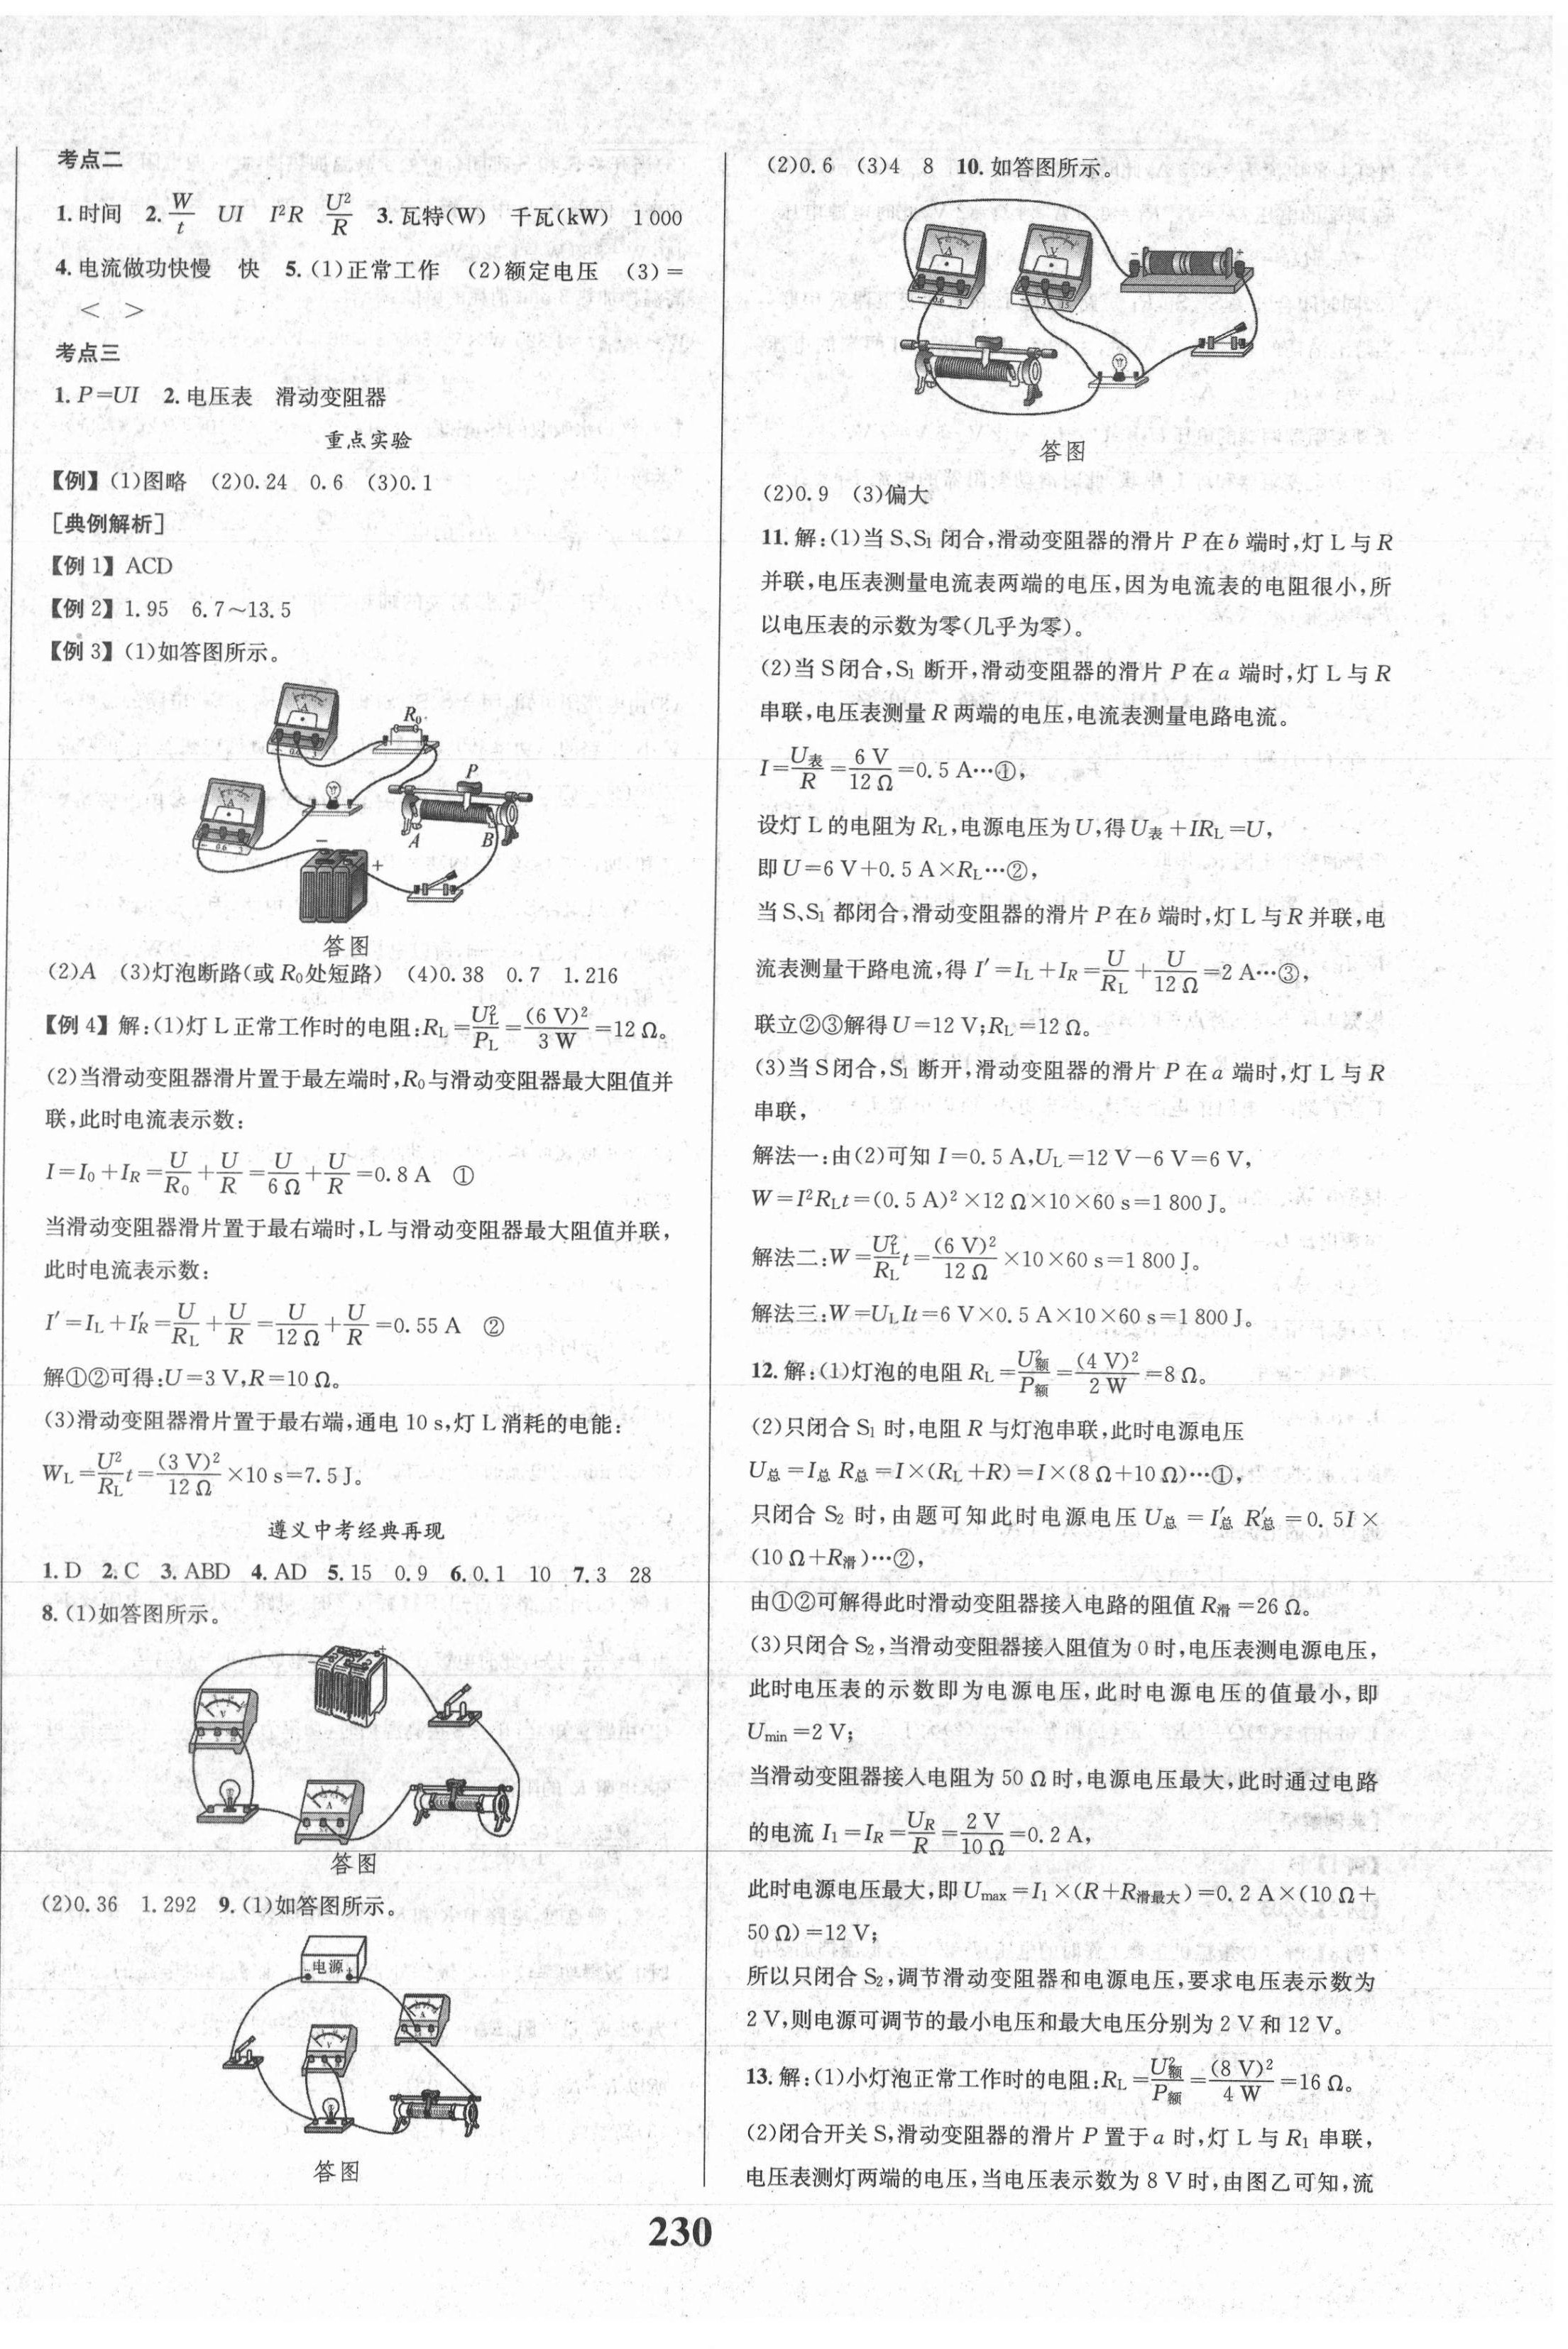 考点二
1.时间 2.W/t UI I²R U²/R 3.瓦特(W) 千瓦(kW) 1 000
4.电流做功快慢 快 5.(1)正常工作 (2)额定电压 (3)=
< >
考点三
1.P=UI 2.电压表 滑动变阻器
重点实验
【例】(1)图略 (2)0.24 0.6 (3)0.1
[典例解析]
【例1】ACD
【例2】1.95 6.7～13.5
【例3】(1)如答图所示。
R₀
P
A B
− +
答图
(2)A (3)灯泡断路(或R₀处短路) (4)0.38 0.7 1.216
【例4】解:(1)灯L正常工作时的电阻:R_L=U_L²/P_L=(6 V)²/3 W=12 Ω。
(2)当滑动变阻器滑片置于最左端时,R₀与滑动变阻器最大阻值并
联,此时电流表示数:
I=I₀+I_R=U/R₀+U/R=U/6 Ω+U/R=0.8 A ①
当滑动变阻器滑片置于最右端时,L与滑动变阻器最大阻值并联,
此时电流表示数:
I′=I_L+I′_R=U/R_L+U/R=U/12 Ω+U/R=0.55 A ②
解①②可得:U=3 V,R=10 Ω。
(3)滑动变阻器滑片置于最右端,通电10 s,灯L消耗的电能:
W_L=U²/R_L t=(3 V)²/12 Ω×10 s=7.5 J。
遵义中考经典再现
1.D 2.C 3.ABD 4.AD 5.15 0.9 6.0.1 10 7.3 28
8.(1)如答图所示。
答图
(2)0.36 1.292 9.(1)如答图所示。
电源
答图
(2)0.6 (3)4 8 10.如答图所示。
答图
(2)0.9 (3)偏大
11.解:(1)当S、S₁闭合,滑动变阻器的滑片P在b端时,灯L与R
并联,电压表测量电流表两端的电压,因为电流表的电阻很小,所
以电压表的示数为零(几乎为零)。
(2)当S闭合,S₁断开,滑动变阻器的滑片P在a端时,灯L与R
串联,电压表测量R两端的电压,电流表测量电路电流。
I=U表/R=6 V/12 Ω=0.5 A…①,
设灯L的电阻为R_L,电源电压为U,得U表+IR_L=U,
即U=6 V+0.5 A×R_L…②,
当S、S₁都闭合,滑动变阻器的滑片P在b端时,灯L与R并联,电
流表测量干路电流,得I′=I_L+I_R=U/R_L+U/12 Ω=2 A…③,
联立②③解得U=12 V;R_L=12 Ω。
(3)当S闭合,S₁断开,滑动变阻器的滑片P在a端时,灯L与R
串联,
解法一:由(2)可知I=0.5 A,U_L=12 V−6 V=6 V,
W=I²R_L t=(0.5 A)²×12 Ω×10×60 s=1 800 J。
解法二:W=U_L²/R_L t=(6 V)²/12 Ω×10×60 s=1 800 J。
解法三:W=U_L It=6 V×0.5 A×10×60 s=1 800 J。
12.解:(1)灯泡的电阻R_L=U额²/P额=(4 V)²/2 W=8 Ω。
(2)只闭合S₁时,电阻R与灯泡串联,此时电源电压
U总=I总R总=I×(R_L+R)=I×(8 Ω+10 Ω)…①,
只闭合S₂时,由题可知此时电源电压U总=I′总R′总=0.5I×
(10 Ω+R滑)…②,
由①②可解得此时滑动变阻器接入电路的阻值R滑=26 Ω。
(3)只闭合S₂,当滑动变阻器接入阻值为0时,电压表测电源电压,
此时电压表的示数即为电源电压,此时电源电压的值最小,即
U_min=2 V;
当滑动变阻器接入电阻为50 Ω时,电源电压最大,此时通过电路
的电流I₁=I_R=U_R/R=2 V/10 Ω=0.2 A,
此时电源电压最大,即U_max=I₁×(R+R滑最大)=0.2 A×(10 Ω+
50 Ω)=12 V;
所以只闭合S₂,调节滑动变阻器和电源电压,要求电压表示数为
2 V,则电源可调节的最小电压和最大电压分别为2 V和12 V。
13.解:(1)小灯泡正常工作时的电阻:R_L=U额²/P额=(8 V)²/4 W=16 Ω。
(2)闭合开关S,滑动变阻器的滑片P置于a时,灯L与R₁串联,
电压表测灯两端的电压,当电压表示数为8 V时,由图乙可知,流
230